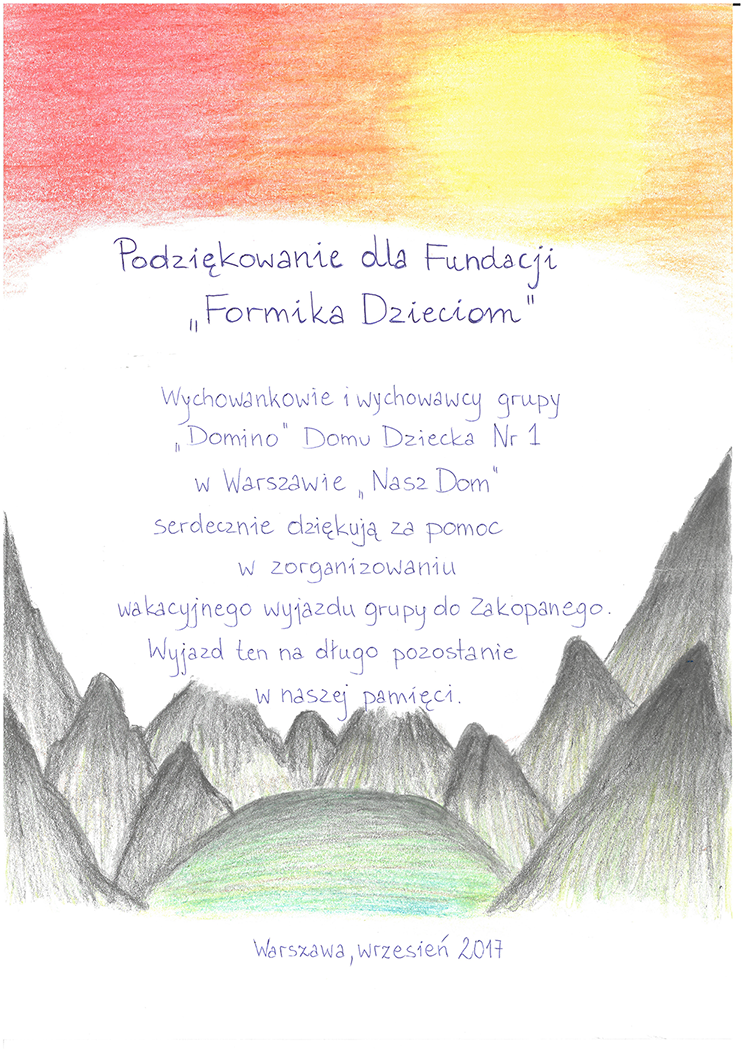 Podziękowanie dla Fundacji
„Formika Dzieciom"
Wychowankowie i wychowawcy grupy
„Domino" Domu Dziecka Nr 1
w Warszawie „Nasz Dom"
serdecznie dziękują za pomoc
w zorganizowaniu
wakacyjnego wyjazdu grupy do Zakopanego.
Wyjazd ten na długo pozostanie
w naszej pamięci.
Warszawa, wrzesień 2017